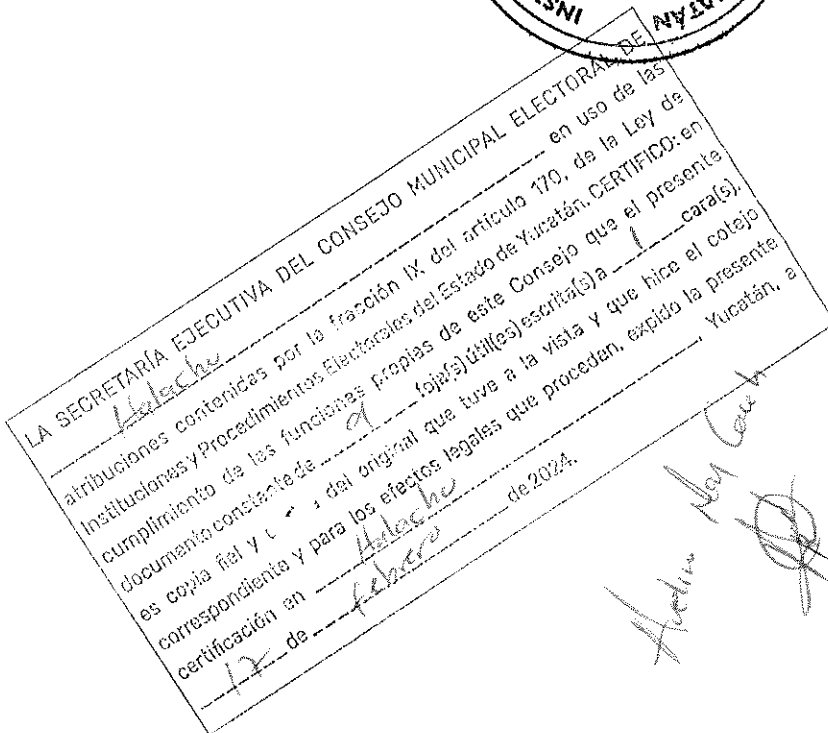 INST
YUCATÁN
LA SECRETARÍA EJECUTIVA DEL CONSEJO MUNICIPAL ELECTORAL DE
Halacho en uso de las
atribuciones contenidas por la fracción IX del artículo 170, de la Ley de
Instituciones y Procedimientos Electorales del Estado de Yucatán, CERTIFICO: en
cumplimiento de las funciones propias de este Consejo que el presente
documento constante de foja(s) útil(es) escrita(s) a 1 cara(s),
es copia fiel y del original que tuve a la vista y que hice el cotejo
correspondiente y para los efectos legales que procedan, expido la presente
certificación en Halacho Yucatán, a
17 de febrero de 2024.